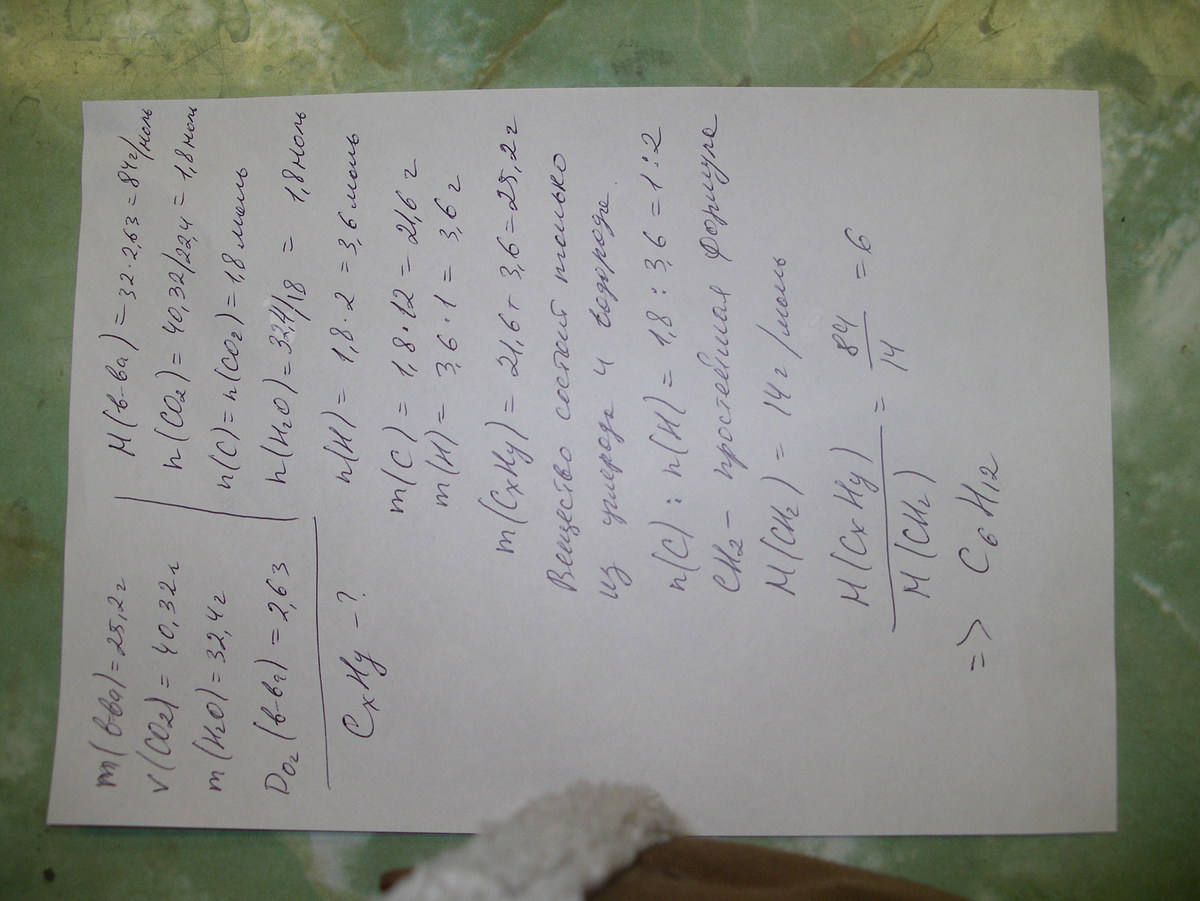 m(в-ва)=25,2г
V(CO2) = 40,32л
m(H2O)=32,4г
DO2(в-ва) = 2,63
CxHy -?
M(в-ва) = 32·2,63=84г/моль
n(CO2) = 40,32/22,4 = 1,8моль
n(C)=n(CO2)=1,8моль
n(H2O)=32,4/18 = 1,8моль
n(H) = 1,8·2=3,6моль
m(C) = 1,8·12 = 21,6г
m(H) = 3,6·1 = 3,6г
m(CxHy) = 21,6+3,6=25,2г
Вещество состоит только
из углерода и водорода.
n(C):n(H) = 1,8:3,6=1:2
CH2 - простейшая формула
M(CH2) = 14г/моль
M(CxHy)/M(CH2) = 84/14 = 6
=> C6H12